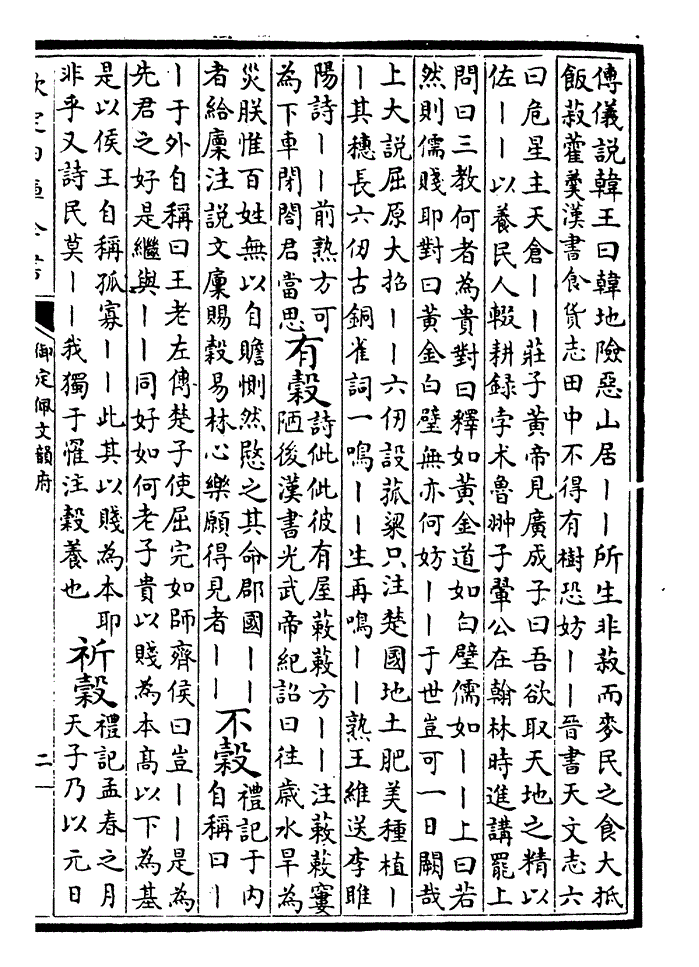 傳儀說韓王曰韓地險惡山居丨丨所生非菽而麥民之食大抵
飯菽藿羹漢書食貨志田中不得有樹恐妨丨丨晉書天文志六
曰危星主天倉丨丨莊子黃帝見廣成子曰吾欲取天地之精以
佐丨丨以養民人輟耕錄孛朮魯翀子翬公在翰林時進講罷上
問曰三教何者為貴對曰釋如黃金道如白璧儒如丨丨上曰若
然則儒賤耶對曰黃金白璧無亦何妨丨丨于世豈可一日闕哉
上大說屈原大招丨丨六仞設菰粱只注楚國地土肥美種植丨
丨其穗長六仞古銅雀詞一鳴丨丨生再鳴丨丨熟王維送李睢
陽詩丨丨前熟方可
為下車閉閤君當思
有穀
詩佌佌彼有屋蔌蔌方丨丨注蔌蔌窶
陋後漢書光武帝紀詔曰往歲水旱為
災朕惟百姓無以自贍惻然愍之其命郡國丨丨
者給廩注說文廩賜穀易林心樂願得見者丨丨
不穀
禮記于內
自稱曰丨
丨于外自稱曰王老左傳楚子使屈完如師齊侯曰豈丨丨是為
先君之好是繼與丨丨同好如何老子貴以賤為本高以下為基
是以侯王自稱孤寡丨丨此其以賤為本耶
非乎又詩民莫丨丨我獨于罹注穀養也
祈穀
禮記孟春之月
天子乃以元日
欽定四庫全書
御定佩文韻府
二